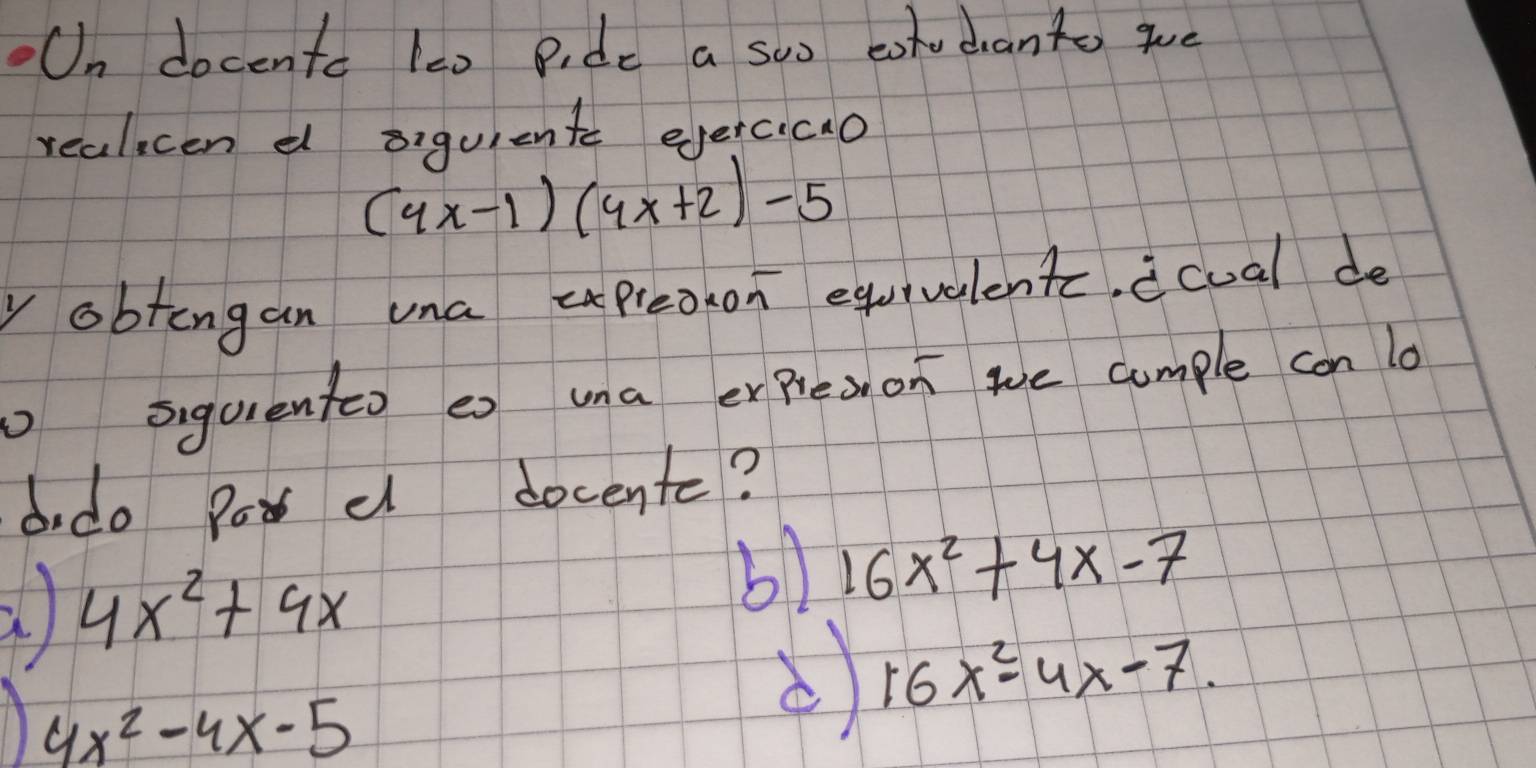 •Un docente les pide a sus estudiantes que
realicen el siguiente ejercicio
(4x-1)(4x+2)-5
y obtengan una expresión equivalente. ¿cual de
siguientes es una expresión que cumple con lo
dido por el docente?
a) 4x²+4x
b) 16x²+4x-7
) 4x²-4x-5
d) 16x²-4x-7.